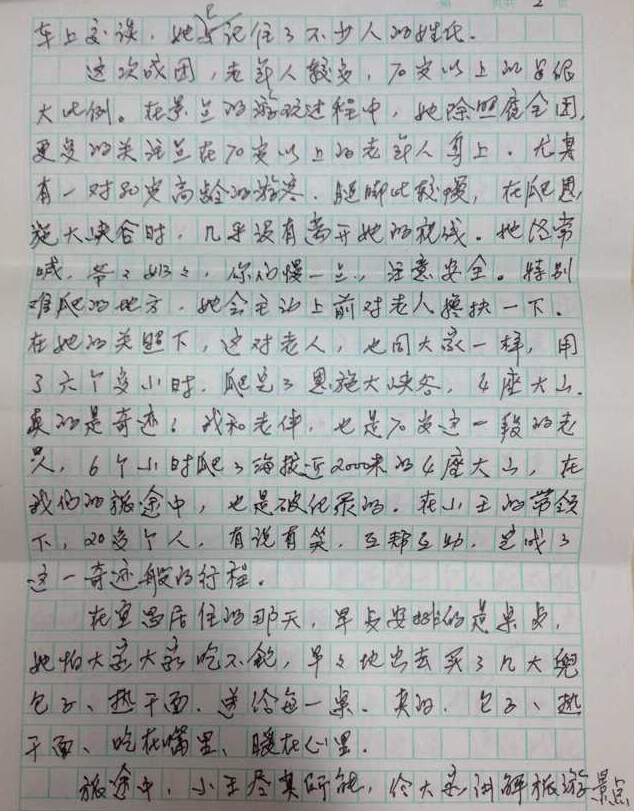 2
车上交谈，她已记住了不少人的姓氏。
这次成团，老年人较多，70岁以上的占很
大比例。在景点的游玩过程中，她除照应全团，
更多的关注点在70岁以上的老年人身上。尤其
有一对80岁高龄的游客，腿脚比较慢，在爬恩
施大峡谷时，几乎没有离开她的视线。她经常
喊，爷々奶々，你们慢一点，注意安全。特别
难爬的地方，她会主动上前对老人搀扶一下。
在她的关照下，这对老人，也同大家一样，用
了六个多小时，爬完了恩施大峡谷，4座大山。
真的是奇迹；我和老伴，也是70岁这一段的老
人，6个小时爬了海拔近2000米的4座大山，在
我们的旅途中，也是破纪录的。在小王的带领
下，20多个人，有说有笑，互帮互助，完成了
这一奇迹般的行程。
在宜昌居住的那天，早点安排的是桌点，
她怕大家大家吃不饱，早々地出去买了几大兜
包子、热干面，送给每一桌。真的，包子、热
干面、吃在嘴里、暖在心里。
旅途中，小王尽其所能，给大家讲解旅游景点